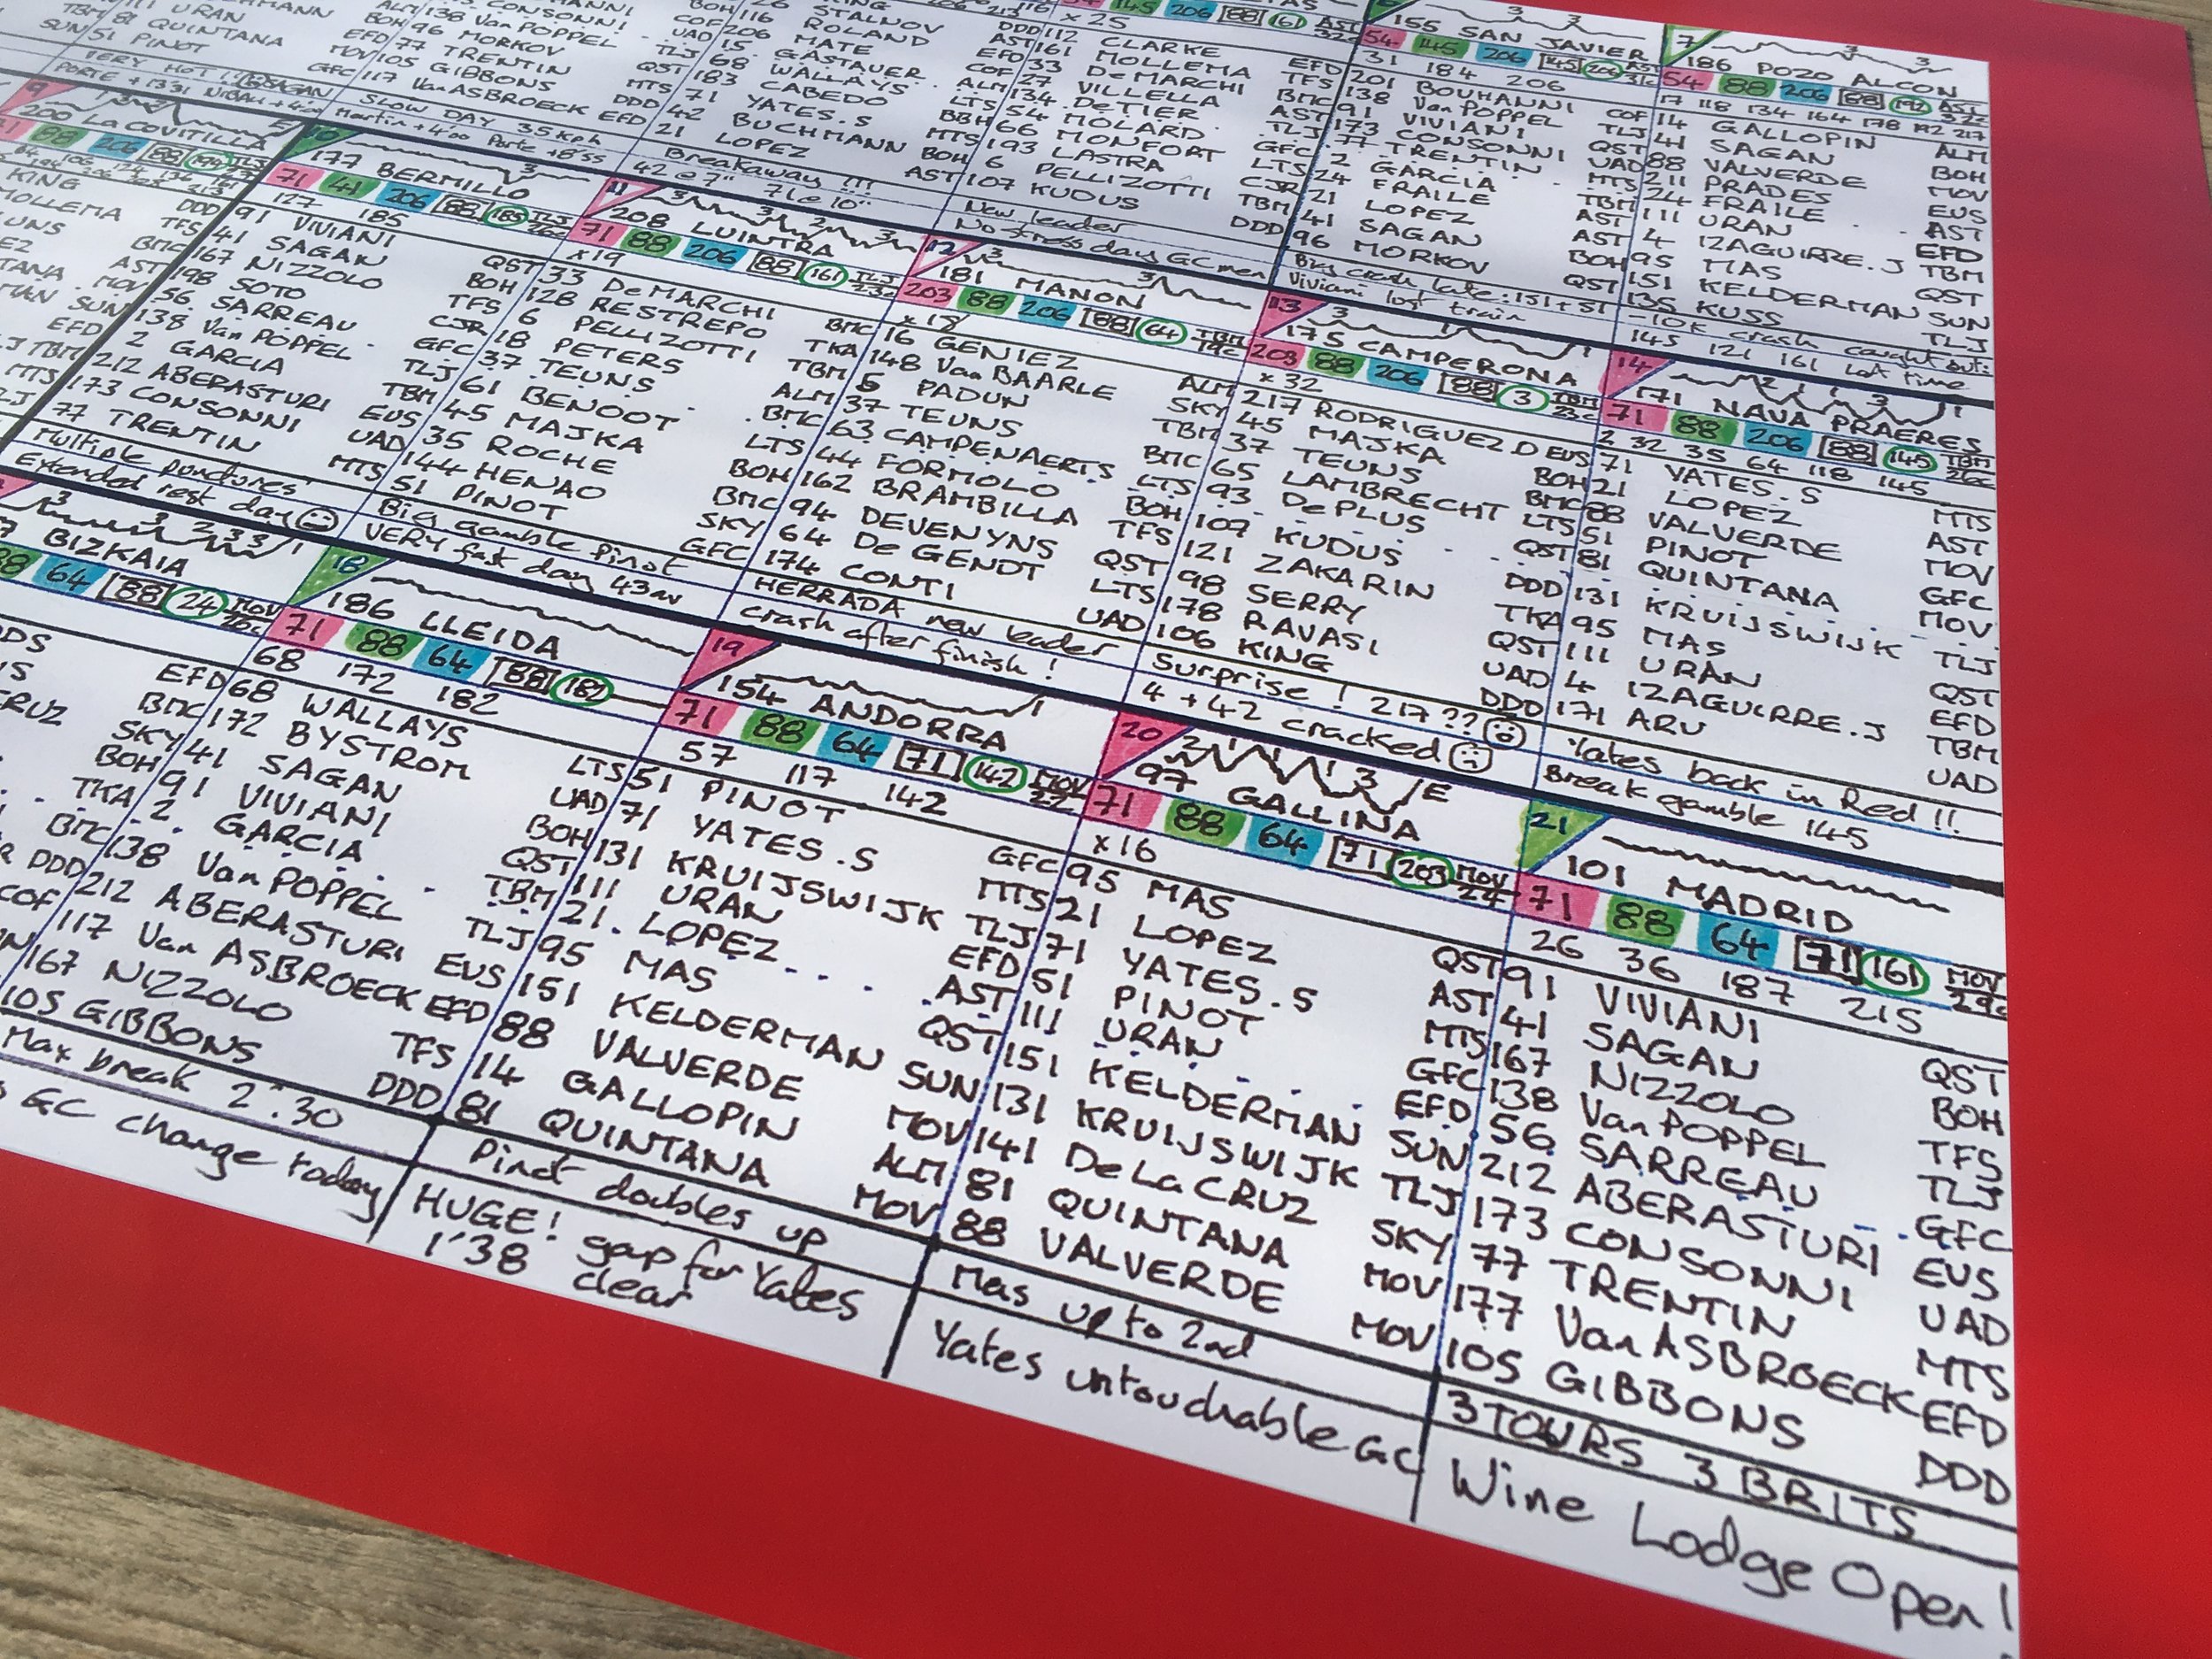 111 URAN
81 QUINTANA EFD
51 PINOT MOV
GFC
VERY HOT !! SAGAN
138 Van POPPEL UAD
96 MORKOV TLJ
77 TRENTIN QST
105 GIBBONS MTS
117 Van ASBROECK DDD
EFD
SLOW DAY 35kph
Martin +4'00 Porte +8'55
STALNOV
116 ROLAND AST
206 MATE EFD
15 GASTAUER COF
68 WALLAYS ALM
183 CABEDO LTS
71 YATES.S BBH
42 BUCHMANN MTS
21 LOPEZ BOH
AST
Breakaway !!!
42 @ 7" 71 @ 10"
x 25
112 CLARKE EFD
161 MOLLEMA TFS
33 De MARCHI BMC
27 VILLELLA AST
134 De TIER TLJ
54 MOLARD GFC
66 MONFORT LTS
193 LASTRA CJR
6 PELLIZOTTI TBM
107 KUDUS DDD
New leader
No stress day GC men
155 SAN JAVIER
54 145 206
31 184 206
201 BOUHANNI COF
138 Van POPPEL TLJ
91 VIVIANI QST
173 CONSONNI UAD
77 TRENTIN MTS
2 GARCIA TBM
24 FRAILE AST
21 LOPEZ AST
41 SAGAN BOH
96 MORKOV QST
Big crash late: 151 + 51
Viviani lost train
7
186 POZO ALCON
54 88 206 88 192 AST
17 118 134 164 178 192 217
14 GALLOPIN ALM
41 SAGAN BOH
88 VALVERDE MOV
211 PRADES EUS
24 FRAILE AST
111 URAN EFD
4 IZAGUIRRE.J TBM
95 MAS QST
151 KELDERMAN SUN
135 KUSS TLJ
-10k crash caught out:
145 121 161 Lot time
9
200 La COVITILLA
88 206 88 194 TLJ
KING DDD
MOLLEMA TFS
BMC
AST
MOV
SUN
EFD
TBM
MTS
10
177 BERMILLO
71 41 206 88 185 TLJ
127 185
91 VIVIANI QST
41 SAGAN BOH
167 NIZZOLO TFS
198 SOTO CJR
56 SARREAU GFC
138 Van POPPEL TLJ
2 GARCIA TBM
212 ABERASTURI EUS
173 CONSONNI UAD
77 TRENTIN MTS
Multiple punctures
Extended rest day
11
208 LUINTRA
71 88 206 88 161 TLJ
x 19
33 De MARCHI BMC
128 RESTREPO TKA
6 PELLIZOTTI TBM
18 PETERS ALM
37 TEUNS BMC
61 BENOOT LTS
45 MAJKA BOH
35 ROCHE BMC
144 HENAO SKY
51 PINOT GFC
Big gamble Pinot
VERY fast day 43av
12
181 MANON
203 88 206 88 64 TBM
x 18
16 GENIEZ ALM
148 Van BAARLE SKY
5 PADUN TBM
37 TEUNS BMC
63 CAMPENAERTS LTS
44 FORMOLO BOH
162 BRAMBILLA TFS
94 DEVENYNS QST
64 De GENDT LTS
174 CONTI UAD
HERRADA new leader
crash after finish !
13
175 CAMPERONA
203 88 206 88 3 TBM
x 32
217 RODRIGUEZ.D EUS
45 MAJKA BOH
37 TEUNS BMC
65 LAMBRECHT LTS
93 De PLUS QST
107 KUDUS DDD
121 ZAKARIN TKA
98 SERRY QST
178 RAVASI UAD
106 KING DDD
Surprise ! 217 ??
4 + 42 cracked
14
171 NAVA PRAERES
71 88 206 88 145 TBM
2 32 35 64 118 145
71 YATES.S MTS
21 LOPEZ AST
88 VALVERDE MOV
51 PINOT GFC
81 QUINTANA MOV
131 KRUIJSWIJK TLJ
95 MAS QST
111 URAN EFD
4 IZAGUIRRE.J TBM
171 ARU UAD
Yates back in Red !!
Break gamble 145
BIZKAIA
88 64 88 24 MOV
EFD
BMC
SKY
BOH
TKA
BMC
DDD
COF
GC change today
18
186 LLEIDA
71 88 64 88 182
68 172 182
68 WALLAYS LTS
172 BYSTROM UAD
41 SAGAN BOH
91 VIVIANI QST
2 GARCIA TBM
138 Van POPPEL TLJ
212 ABERASTURI EUS
117 Van ASBROECK EFD
167 NIZZOLO TFS
105 GIBBONS DDD
Max break 2':30
19
154 ANDORRA
71 88 64 71 142 MOV
57 117 142
51 PINOT GFC
71 YATES.S MTS
131 KRUIJSWIJK TLJ
111 URAN EFD
21 LOPEZ AST
95 MAS QST
151 KELDERMAN SUN
88 VALVERDE MOV
14 GALLOPIN ALM
81 QUINTANA MOV
Pinot doubles up
HUGE! gap for Yates
1'38 clear
20
97 GALLINA
71 88 64 71 203 MOV
x 16
95 MAS QST
21 LOPEZ AST
71 YATES.S MTS
51 PINOT GFC
111 URAN EFD
151 KELDERMAN SUN
131 KRUIJSWIJK TLJ
141 De La CRUZ SKY
81 QUINTANA MOV
88 VALVERDE MOV
Mas up to 2nd
Yates untouchable GC
21
101 MADRID
71 88 64 71 161 MOV
26 36 187 215
91 VIVIANI QST
41 SAGAN BOH
167 NIZZOLO TFS
138 Van POPPEL TLJ
56 SARREAU GFC
212 ABERASTURI EUS
173 CONSONNI UAD
77 TRENTIN MTS
177 Van ASBROECK EFD
105 GIBBONS DDD
3 TOURS 3 BRITS
Wine Lodge Open !